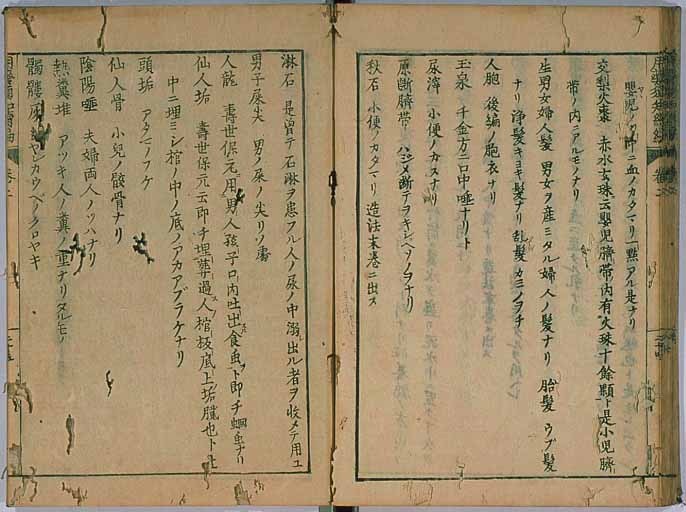 嬰児ノ口中ニ血ノカタマリ一點アル是ナリ
交梨火棗 赤水玄珠云嬰児臍帯内有火珠十餘顆ト是小児臍
帯ノ内ニアルモノナリ
生男女婦人髪 男女ヲ産ミタル婦人ノ髪ナリ 胎髪 ウブ髪
ナリ 浄髪 キヨキ髪ナリ 乱髪 カミノヲチ
人胞 後編ノ胞衣ナリ
玉泉 千金方ニ口中唾ナリト
尿滓 小便ノカスナリ
原断臍帯 ハジメ断テヲキシヘソノヲナリ
秋石 小便ノカタマリ 造法末巻ニ出ス
淋石 是曽テ石淋ヲ患フル人ノ尿ノ中溺出ル者ヲ收メテ用ユ
男子屎尖 男ノ屎ノ尖リソ
人龍 壽世保元用男人孩子口内吐出食虫ト即チ蛔虫ナリ
仙人垢 壽世保元云即チ埋葬過人棺板底上垢膩也ト土
中ニ埋ミシ棺ノ中ノ底ノアカアブラケナリ
頭垢 アタマノフケ
仙人骨 小児ノ骸骨ナリ
陰陽唾 夫婦両人ノツハナリ
熱糞堆 アツキ人ノ糞ノ重ナリタルモノ
髑髏